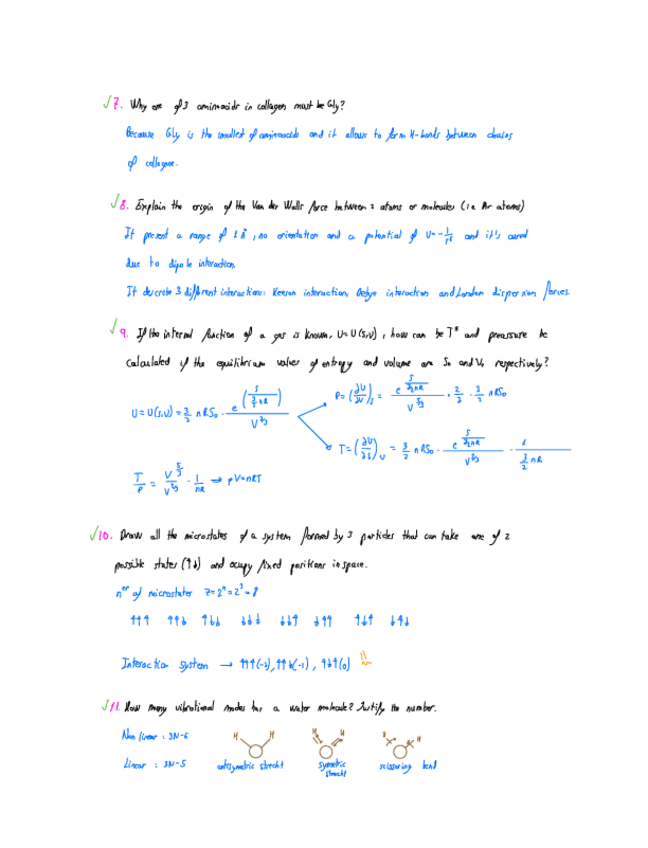 √7. Why one of 3 aminoacids in collagen must be Gly?
Because Gly is the smallest of aminoacids and it allows to form H-bonds between chains
of collagene.
√8. Explain the origin of the Van der Walls force between 2 atoms or molecules (i.e Ar atoms)
It present a range of 1 Å, no orientation and a potential of U=-1/r⁶ and it's caused
due to dipole interaction
It describe 3 different interactions: Keeson interaction, Debye interaction and London dispersion forces.
√9. If the internal function of a gas is known, U=U(S,V), how can be Tª and preassure be
calculated if the equilibrium values of entropy and volume are S₀ and V₀ respectively?
U = U(S,V) = 3/2 nRS₀ ·
P = (∂U/∂V)S =
T = (∂U/∂S)V = 3/2 nRS₀ ·
⇒ pV=nRT
√10. Draw all the microstates of a system formed by 3 particles that can take one of 2
possible states (↑↓) and ocupy fixed positions in space.
nᵉʳ of microstates Z=2ⁿ=2³=8
↑↑↑ ↑↑↓ ↑↓↓ ↓↓↓ ↓↓↑ ↓↑↑ ↑↓↑ ↓↑↓
Interaction system → ↑↑↑(-2), ↑↑↓(-1), ↑↓↑(0)
√11. How many vibrational modes has a water molecule? Justify the number.
Non linear : 3N-6
H H H H H
Linear : 3N-5 antisymetric strecht symetric scissoring bend
strecht